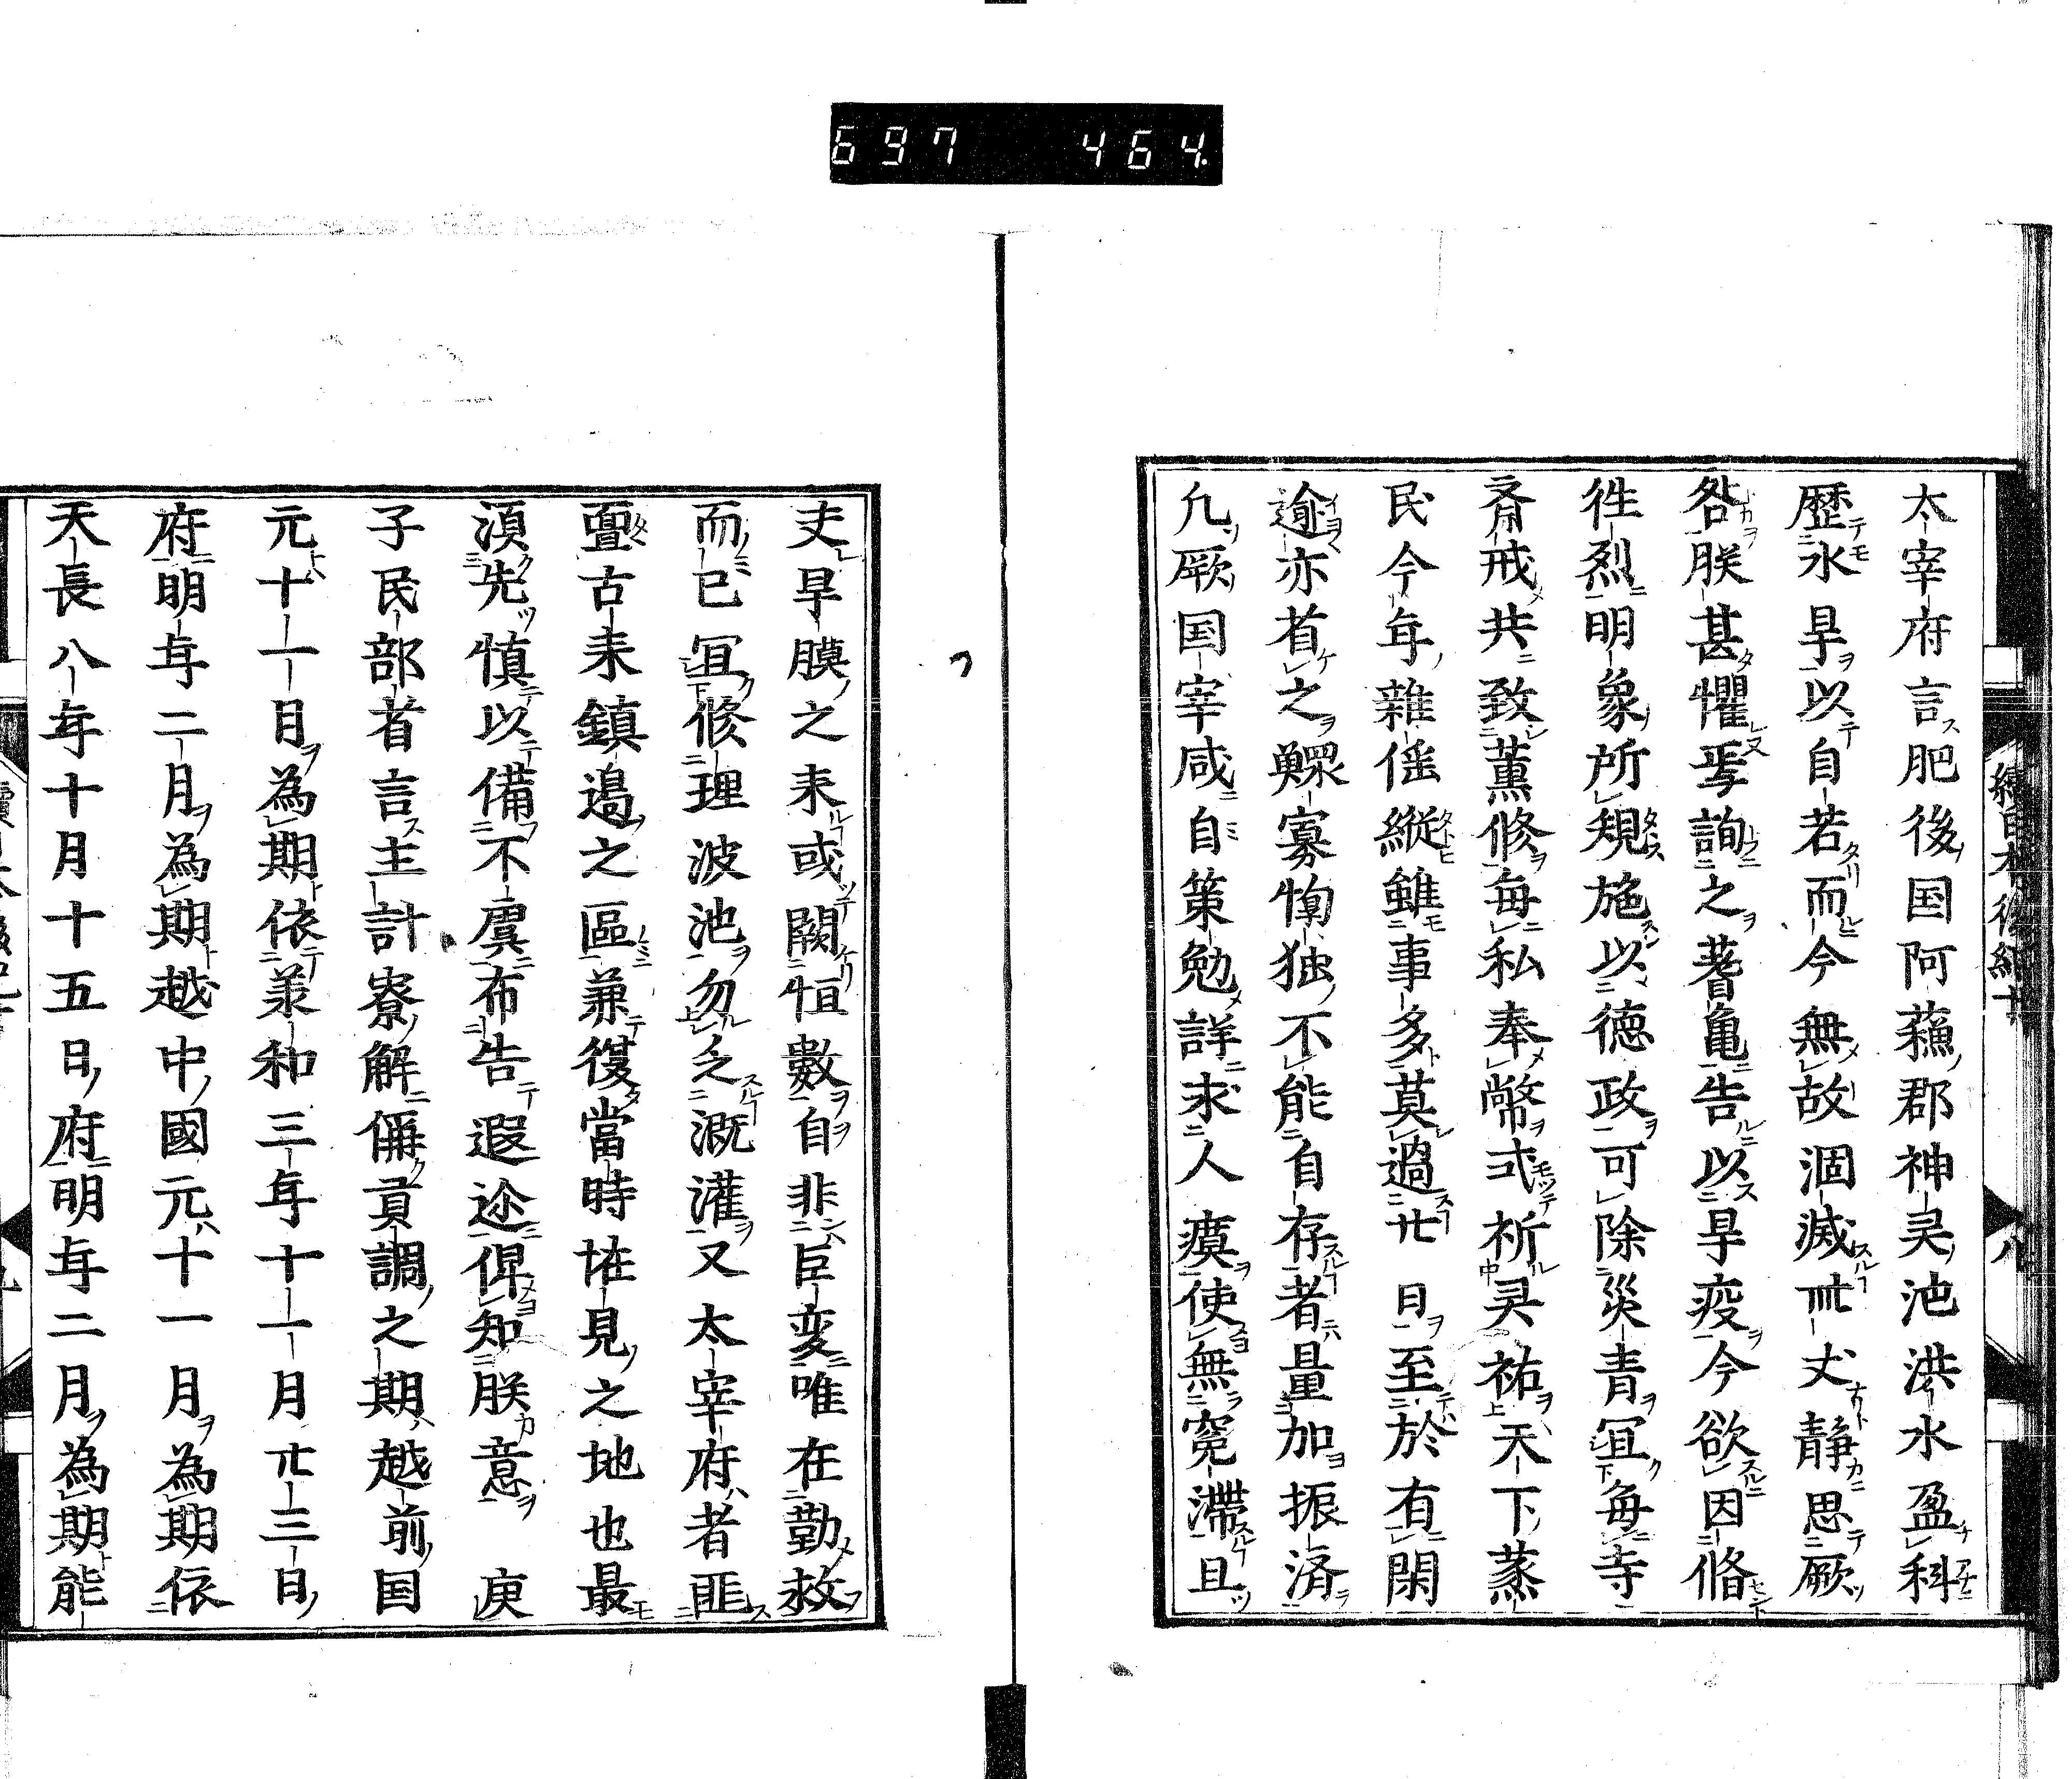 697 464
太宰府言肥後国阿蘓郡神灵池洪水盈科
歴水旱以自若而今無故涸減卌丈静思厥
咎朕甚懼焉詢之蓍亀告以旱疫今欲因脩
徃烈明象所規施以徳政可除災青冝毎寺
斎戒共致薫修毎私奉幣式祈灵祐天下蒸
民今年雑徭縦雖事多莫過廿日至於有閑
逾亦省之鰥寡惸独不能自存者量加振済
凢厥国宰咸自策勉詳求人瘼使無寃滞且
夫旱膜之来或闕恒數自非臣変唯在勤救
而已冝修理波池勿乏漑灌又太宰府者匪
亶古来鎮邊之區兼復當時恠見之地也最
湏先慎以備不虞布告遐迩俾知朕意　庚
子民部省言主計寮解偁貢調之期越前国
元十一月為期依羕和三年十一月廾三日
府明年二月為期越中國元十一月為期依
天長八年十月十五日府明年二月為期能
續日本後紀十
八
九